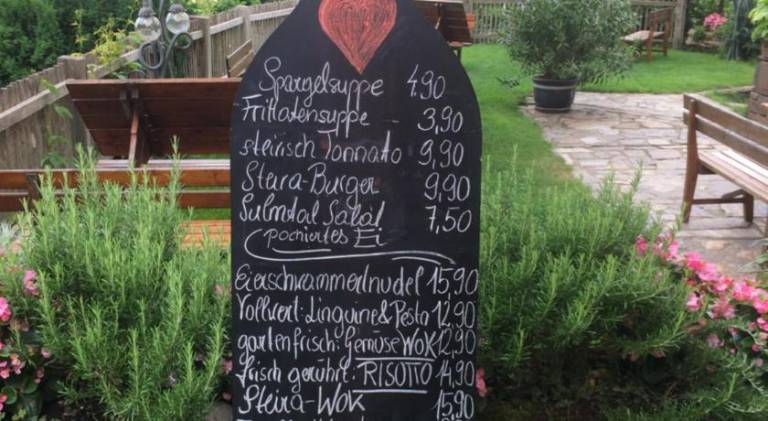 Spargelsuppe 4.90
Frittatensuppe 3,90
steirisch Tonnato 9,90
Steira-Burger 9,90
Sulmtal Salat 7,50
pochiertes Ei
Eierschwammerlnudel 15,90
Vollwert: Linguine & Pesto 12,90
gartenfrisch: Gemüse WOK 12,90
frisch gerührt: RISOTTO 14,90
Steira-WOK 15,90